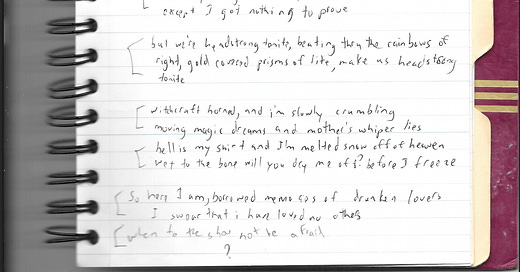 except I got nothing to prove
but we're headstrong tonite, beating thru the rainbows of
right, gold covered prisms of lite, make us headstrong
tonite
witchcraft horned, and i'm slowly crumbling
moving magic dreams and mother's whisper lies
hell is my shirt and I'm melted snow off of heaven
wet to the bone will you dry me off? before I freeze
So here I am, borrowed memories of drunken lovers
I swear that i have loved no others
when to the not be afraid
?